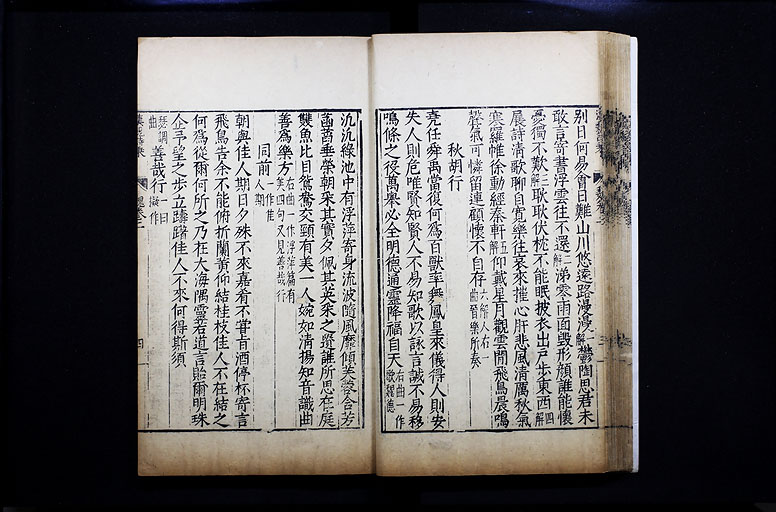 別日何易會日難山川悠遠路漫漫一解鬱陶思君未
敢言寄書浮雲往不還二解涕零雨面毀形顏誰能懷
憂獨不歎三解耿耿伏枕不能眠披衣出戶步東西四解
展詩清歌聊自寬樂往哀來摧心肝悲風清厲秋氣
寒羅帷徐動經秦軒五解仰戴星月觀雲閒飛鳥晨鳴
聲氣可憐留連顧懷不自存六解右一曲晉樂所奏
秋胡行
堯任舜禹當復何為百獸率舞鳳皇來儀得人則安
失人則危唯賢知賢人不易知歌以詠言誠不易移
鳴條之役萬舉必全明德通靈降福自天右曲一作歌魏德
汎汎綠池中有浮萍寄身流波隨風靡傾芙蓉含芳
菡萏垂榮朝采其實夕佩其英采之遺誰所思在庭
雙魚比目鴛鴦交頸有美一人婉如清揚知音識曲
善為樂方右曲一作浮萍篇有美四句又見善哉行
同前一作佳人期
朝與佳人期日夕殊不來嘉肴不嘗旨酒停杯寄言
飛鳥告余不能俯折蘭英仰結桂枝佳人不在結之
何為從爾何所之乃在大海隅靈若道言貽爾明珠
企予望之步立躊躇佳人不來何得斯須
善哉行
四